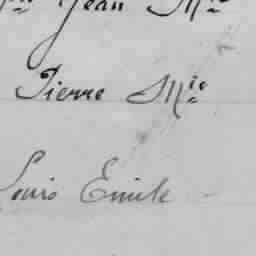 Jean Mie
Pierre Mie
Louis Emile